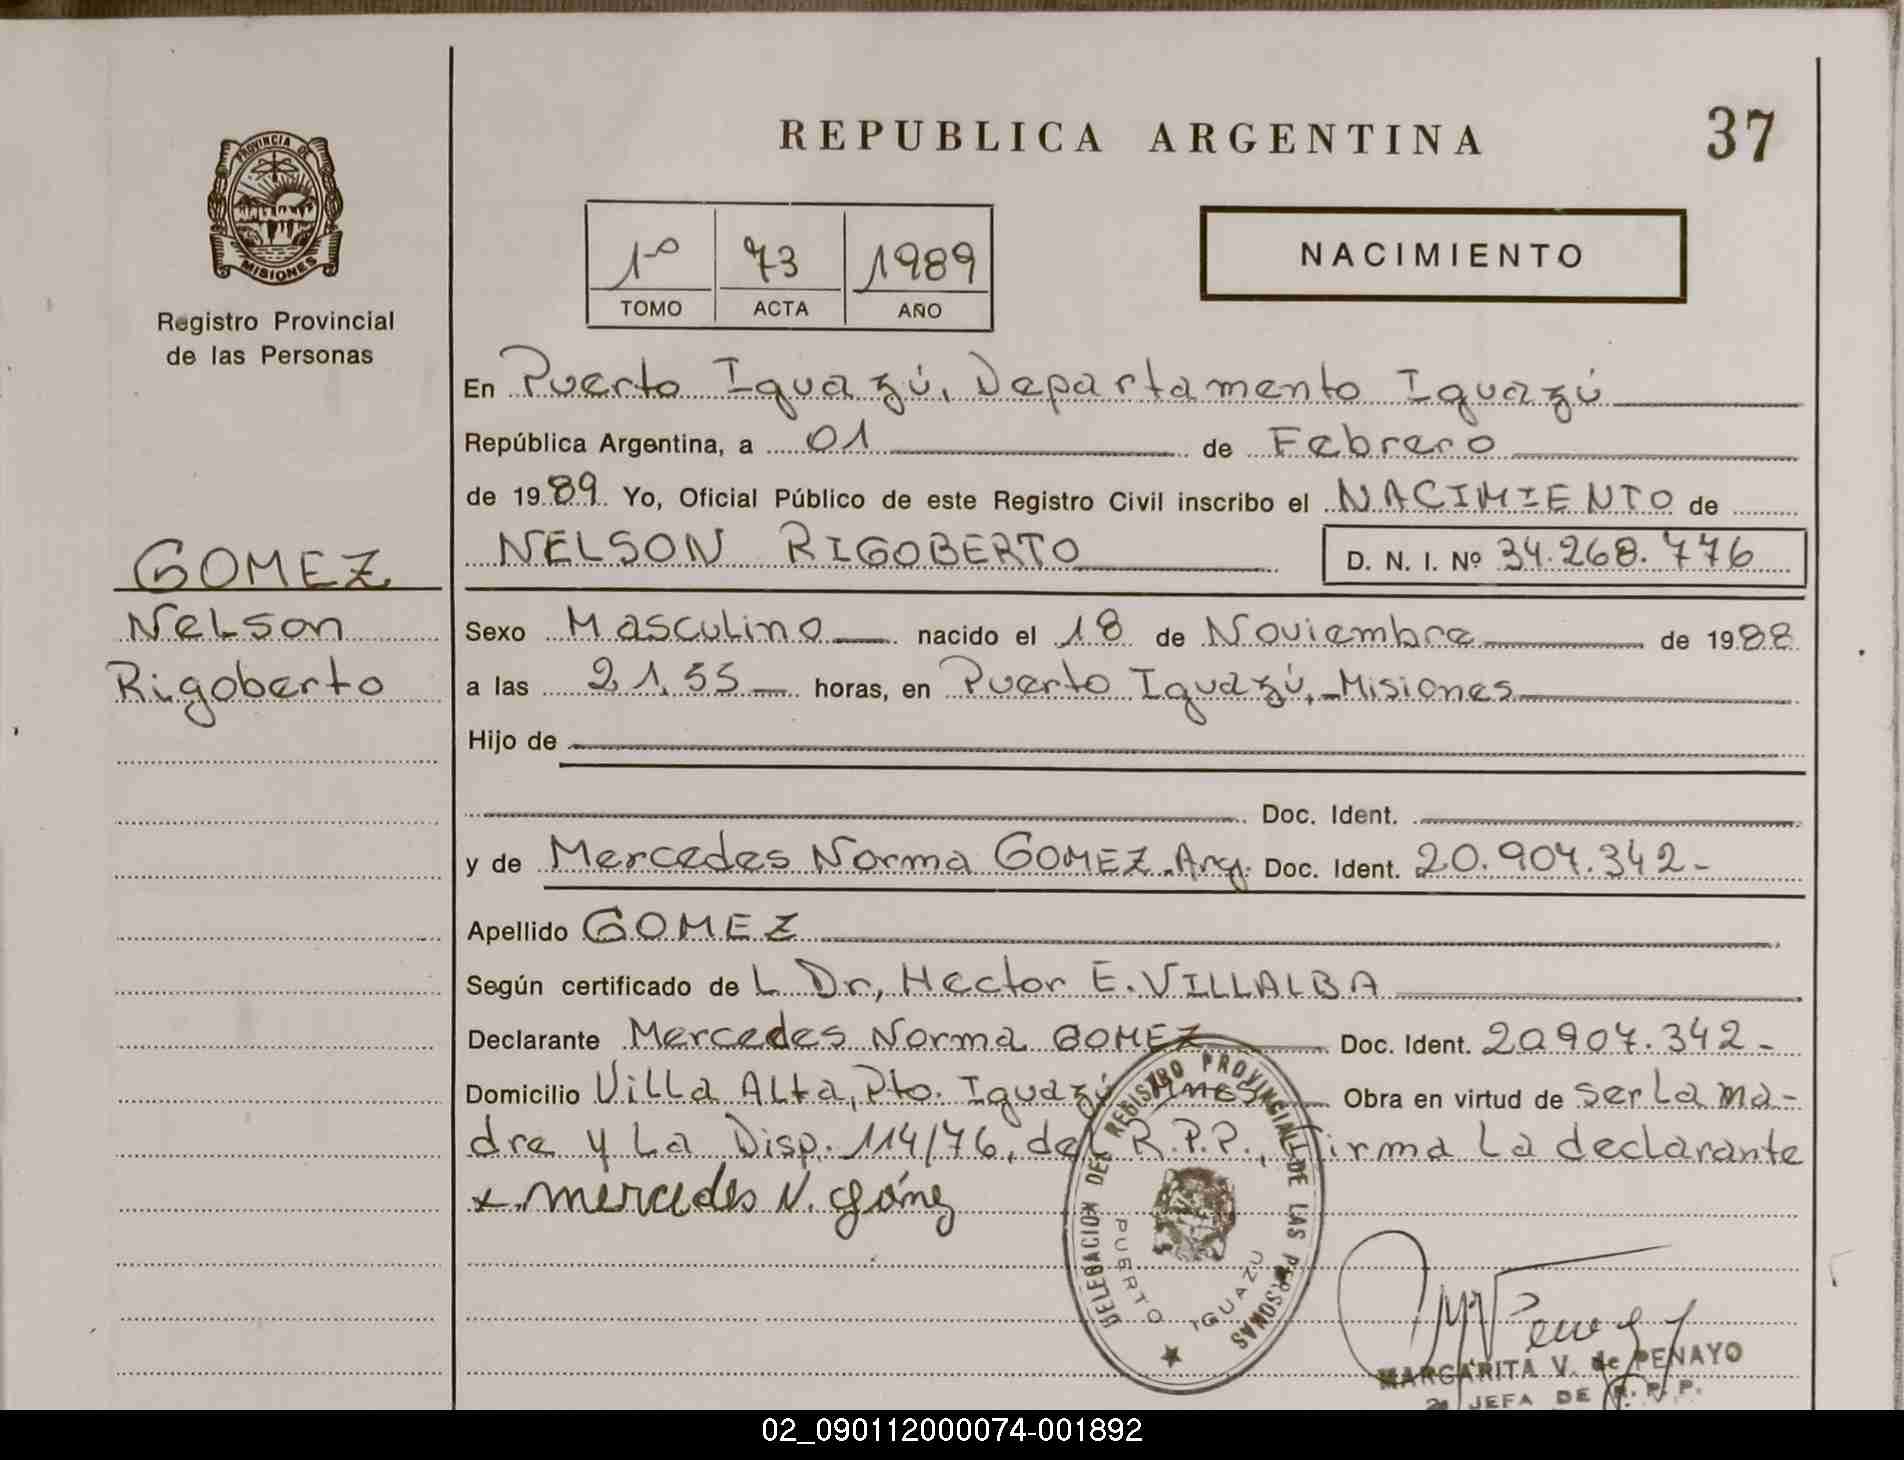 REPUBLICA ARGENTINA
37
PROVINCIA DE
MISIONES
Registro Provincial
de las Personas
1º 73 1989
TOMO ACTA AÑO
NACIMIENTO
En Puerto Iguazú, Departamento Iguazú
República Argentina, a 01 de Febrero
de 1989 Yo, Oficial Público de este Registro Civil inscribo el NACIMIENTO de
NELSON RIGOBERTO D. N. I. Nº 34.268.776
GOMEZ
Nelson
Rigoberto
Sexo Masculino nacido el 18 de Noviembre de 1988
a las 21,55 horas, en Puerto Iguazú, Misiones
Hijo de
Doc. Ident.
y de Mercedes Norma GOMEZ. Arg. Doc. Ident. 20.907.342-
Apellido GOMEZ
Según certificado de L Dr, Hector E. VILLALBA
Declarante Mercedes Norma GOMEZ Doc. Ident. 20907.342-
Domicilio Villa Alta, Pto. Iguazú Mnes Obra en virtud de ser la ma-
dre y La Disp. 114/76, del R.P.P., Firma La declarante
x. mercedes N. Gómez
DELEGACION DEL REGISTRO PROVINCIAL DE LAS PERSONAS
PUERTO IGUAZU
MARGARITA V. de PENAYO
JEFA DE R.P.P.
02_090112000074-001892